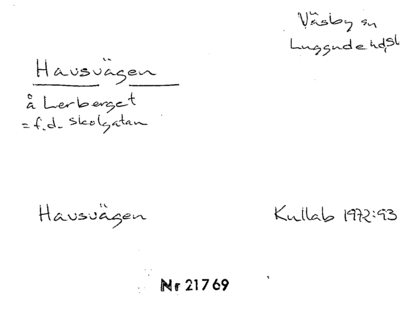 Väsby sn
Luggude hdsl
Havsvägen
å Lerberget
= f.d. Skolgatan
Havsvägen
Kullab 1972:93
Nr 21769